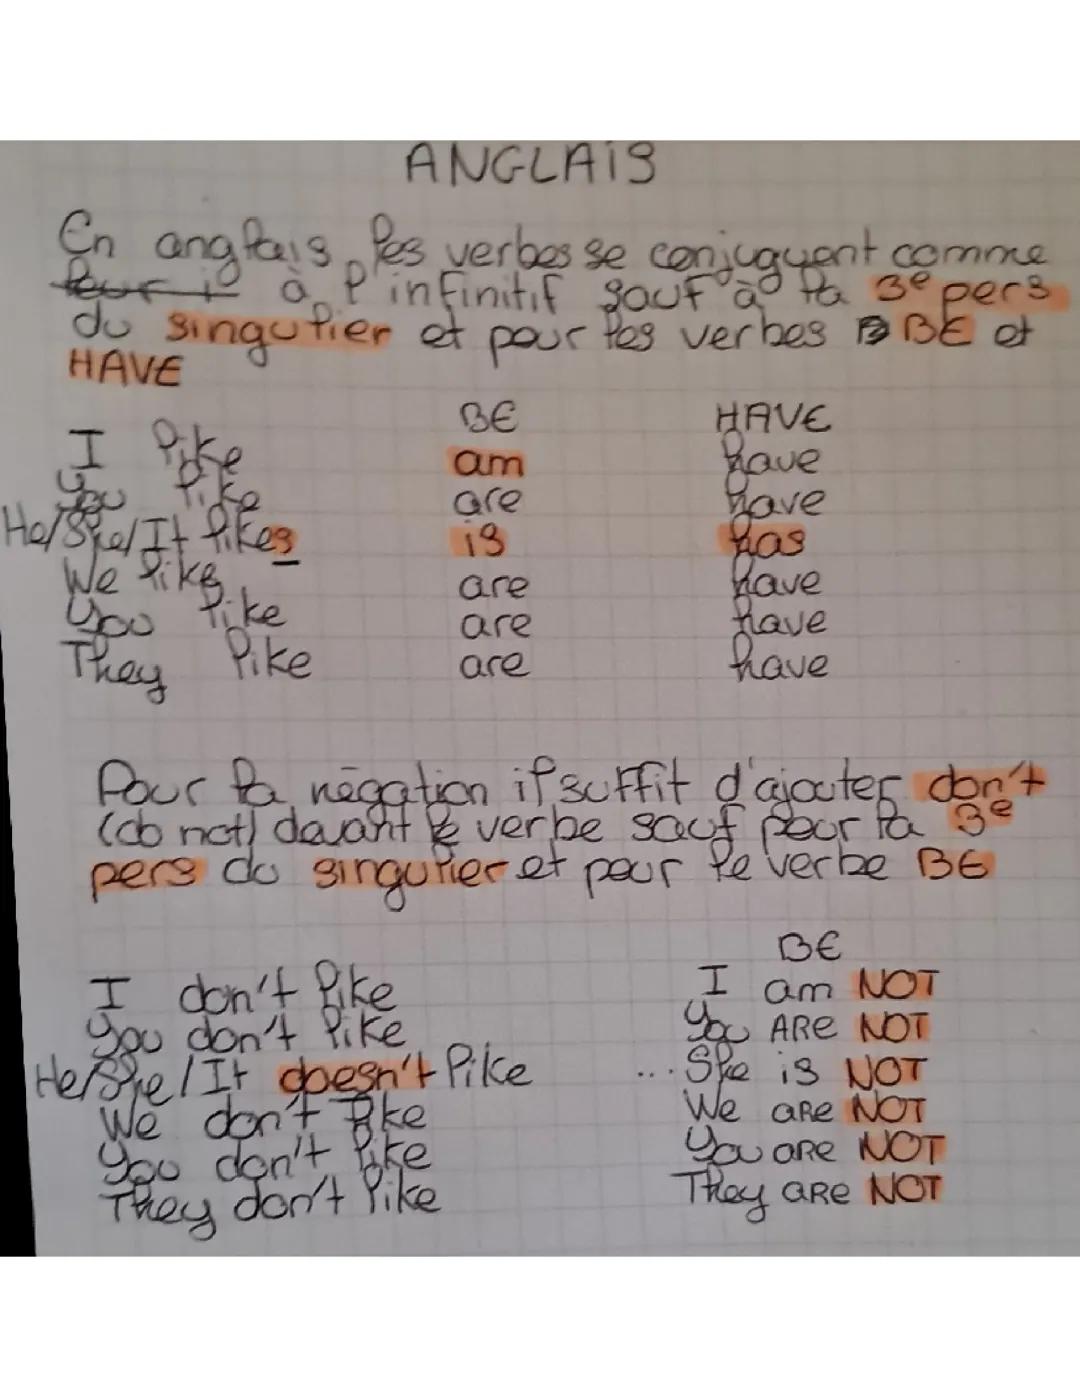 ANGLAIS
En anglais, les verbes se conjuguent comme
à l'infinitif sauf à la 3e pers
du singulier et pour les verbes BE et
HAVE
BE HAVE
I like am have
You like are have
He/She/It likes is has
We like are have
You like are have
They like are have
Pour la négation il suffit d'ajouter don't
(do not) devant le verbe sauf pour la 3e
pers du singulier et pour le verbe BE
BE
I don't like I am NOT
You don't like You ARE NOT
He/She/It doesn't like ... She is NOT
We don't like We are NOT
You don't like You are NOT
They don't like They are NOT